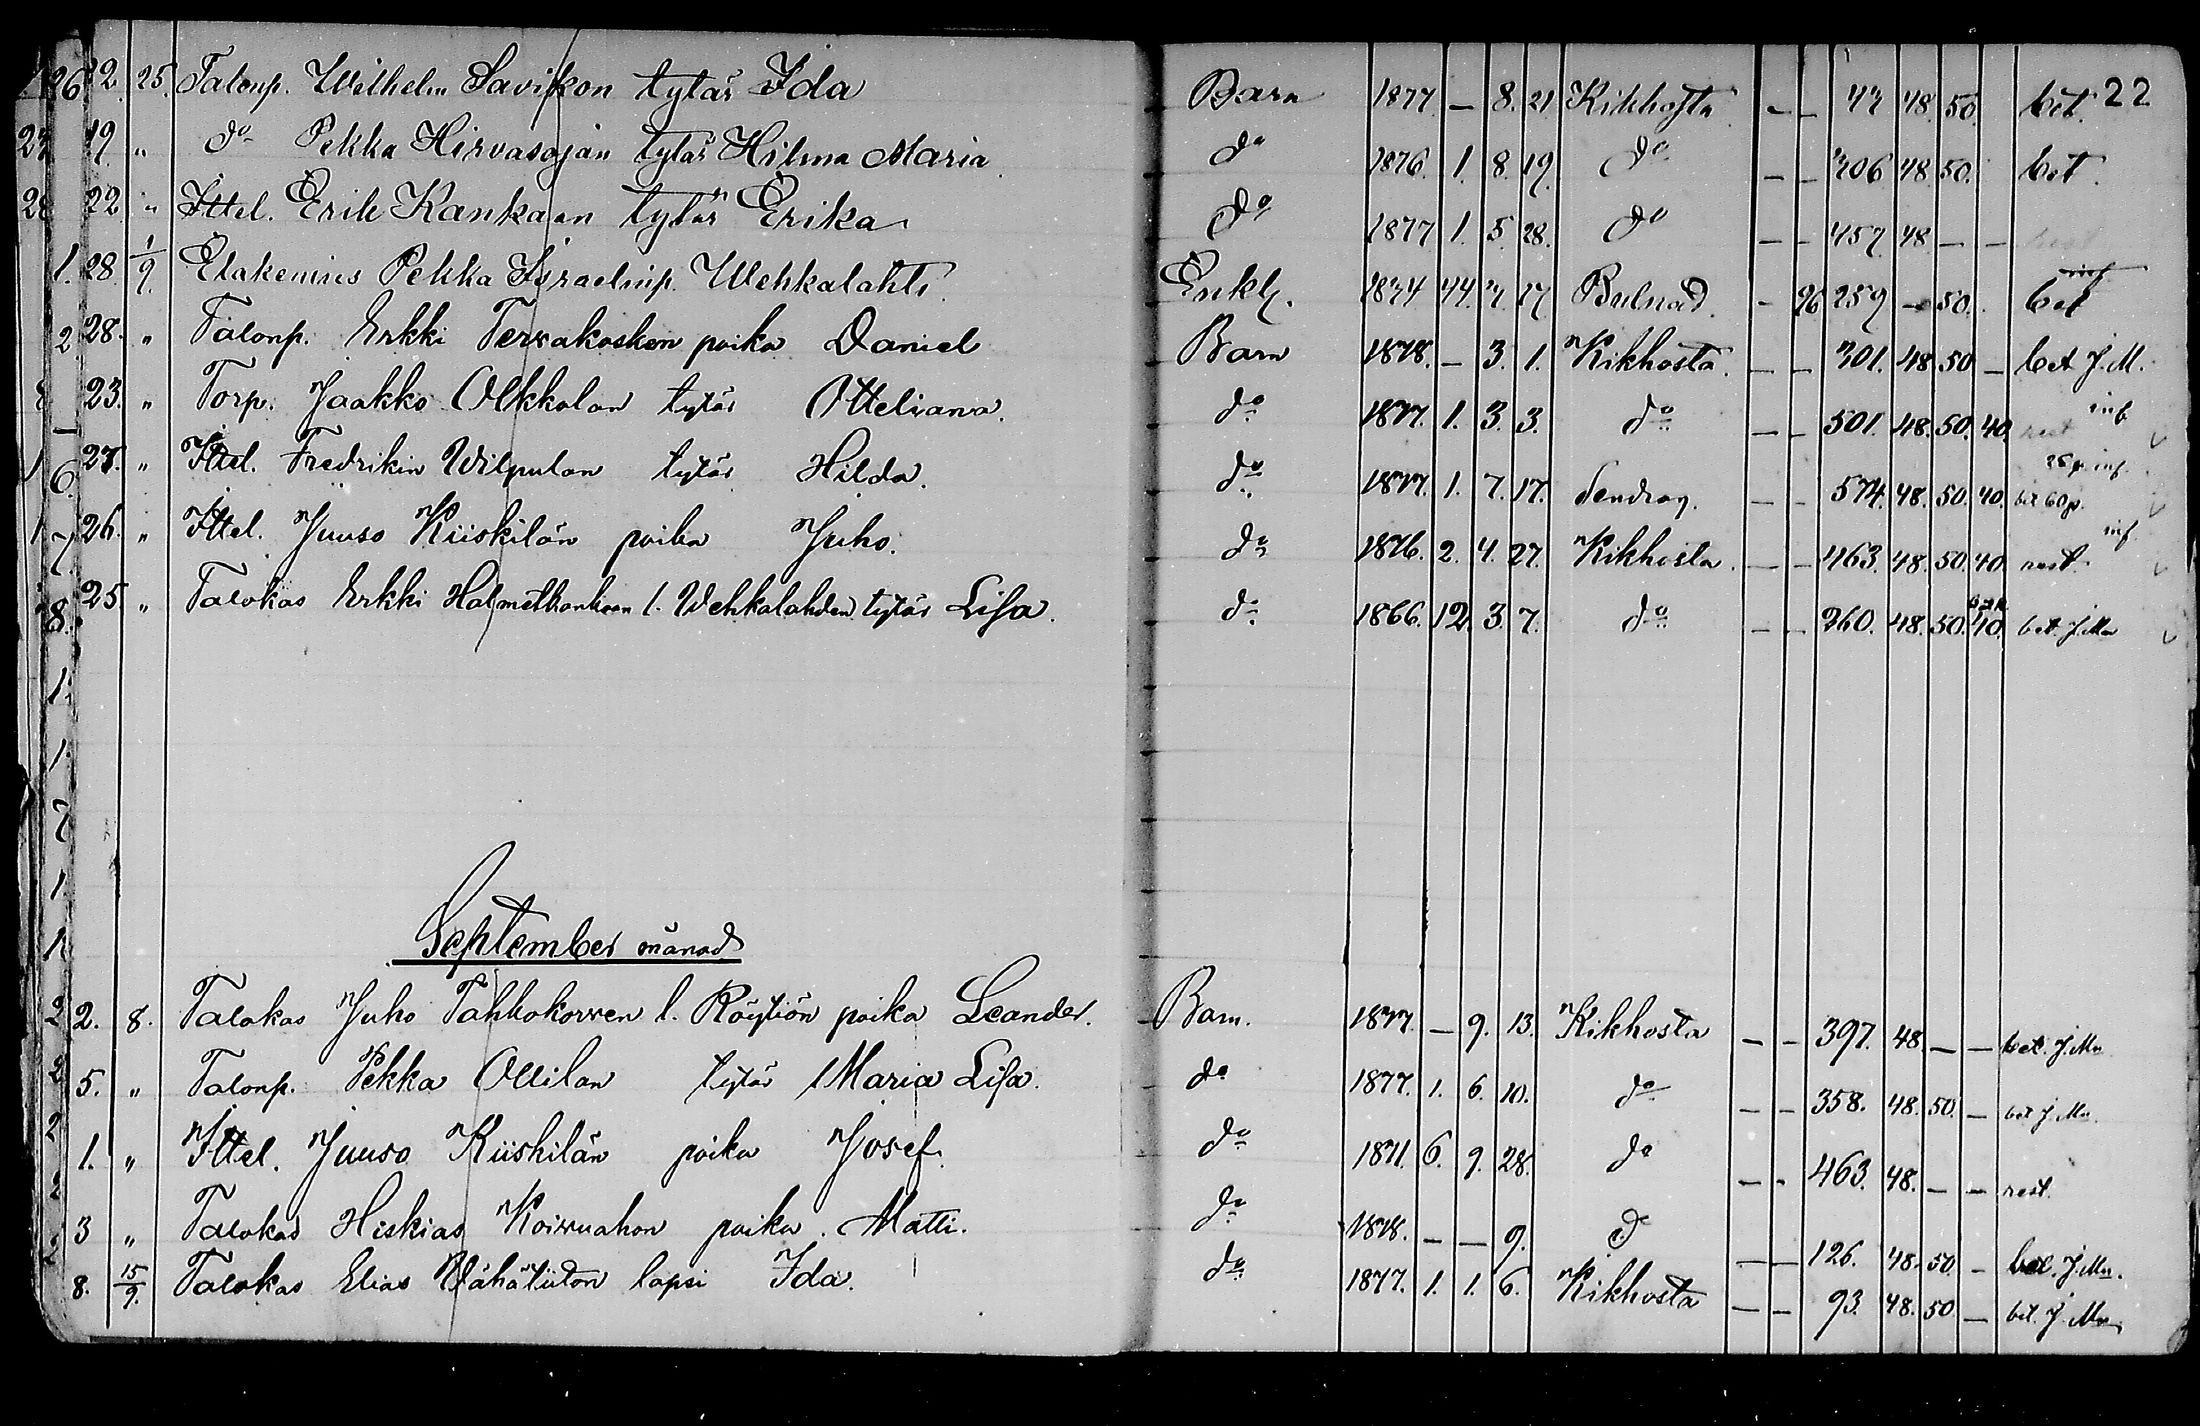 22. 25. Talonp. Wilhelm Savikon tytär Ida Barn 1877 — 8. 21 Kikhosta — — 47 48 50 bet. 22
19. " do Pekka Hirvasojan tytär Hilma Maria do 1876. 1. 8. 19. do — — 406 48. 50. bet.
22 " Ittel. Erik Kankaan tytär Erika do 1877 1. 5. 28. do — — 457 48 — — rest
28. 1/9. Pekka Israelinp. Wehkalahti. Enkl. 1834 44. 7. 17 — 26 259 — 50. bet
2 28. " Talonp. Erkki Tervakosken poika Daniel Barn 1878. — 3. 1. Kikhosta. — — 301. 48 50 — bet J. M.
23. " Torp. Jaakko Olkkolan tytär Otteliana. do 1877. 1. 3. 3. do — — 501. 48. 50. 40. rest inf
6. 27. " Ittel. Fredrikin Wilpulan tytär Hilda. do 1877. 1. 7. 17. — — 574. 48. 50. 40. bet 60 p. 25 p. inf.
7 26. " Ittel. Juuso Kiiskilän poika Juho. do 1876. 2. 4. 27. Kikhosta. — — 463. 48. 50. 40. rest inf
8. 25 " Talokas Erkki l. Wehkalahden tytär Lisa. do 1866. 12. 3. 7. do — — 260. 48. 50. 40. bet. J. Mn
September månad
2. 8. Talokas Juho Tahkokorven l. Röytiön poika Leander. Barn. 1877. — 9. 13. Kikhosta — — 397. 48. — — bet. J. Mn
5. " Talonp. Pekka Ollilan tytär Maria Lisa. do 1877. 1. 6. 10. do — — 358. 48. 50. — bet J. Mn.
1. " Ittel. Juuso Kiiskilän poika Josef. do 1871. 6. 9. 28. do — — 463. 48. — — rest.
3 " Talokas Hiskias Koivuahon poika. Matti. do 1878. — — 9. d — — 126. 48. 50. — bet. J. Mn.
8. 15/9. Talokas Elias Vähätiiton lapsi Ida. do 1877. 1. 1. 6. Kikhosta — — 93. 48. 50. — bet. J. Mn